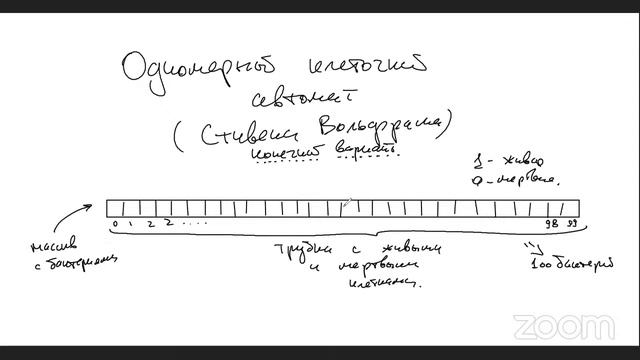 Одномерный клеточный
автомат
(Стивена Вольфрама)
конечный вариант
1 - живая
0 - мертвые.
0 1 2 2 .... 98 99
массив
с бактериями
трубка с живыми
и мертвыми
клетками.
100 бактерий
zoom